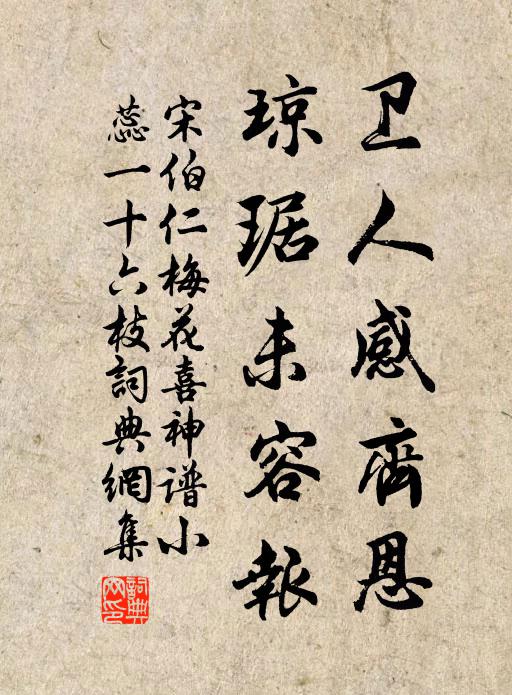 卫人感齊恩
琼琚未容報
宋伯仁梅花喜神谱小
蕊一十六枝詞典網集
詞典網印